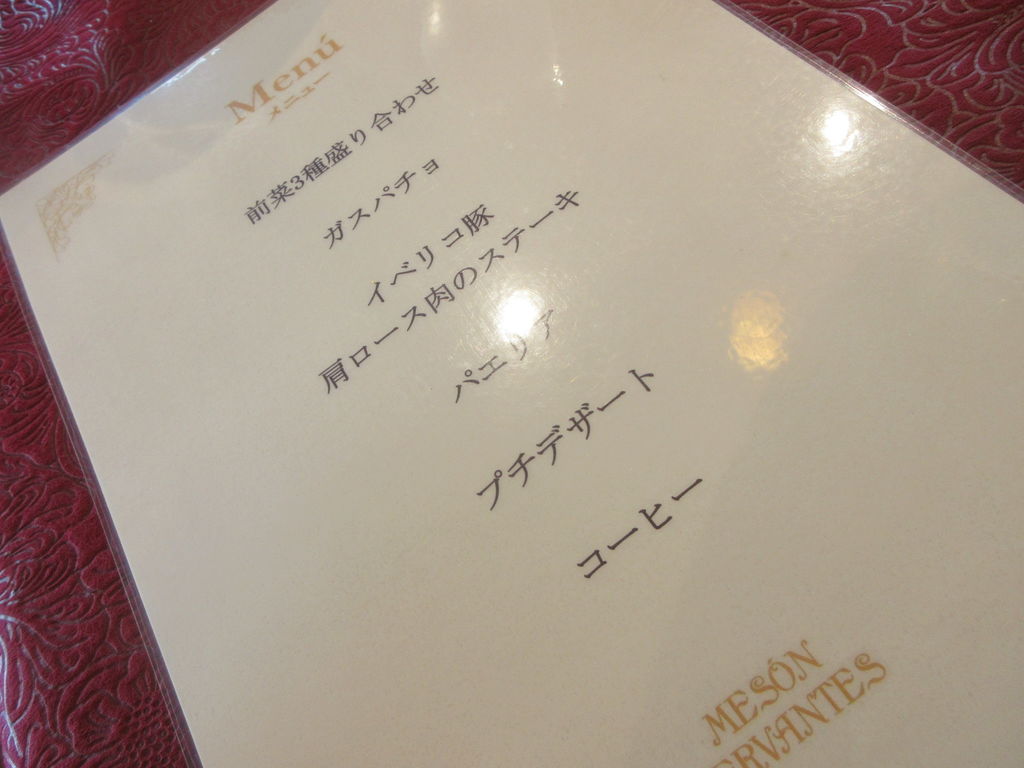 Menú
メニュー
前菜3種盛り合わせ
ガスパチョ
イベリコ豚
肩ロース肉のステーキ
パエリア
プチデザート
コーヒー
MESÓN
ERVANTES